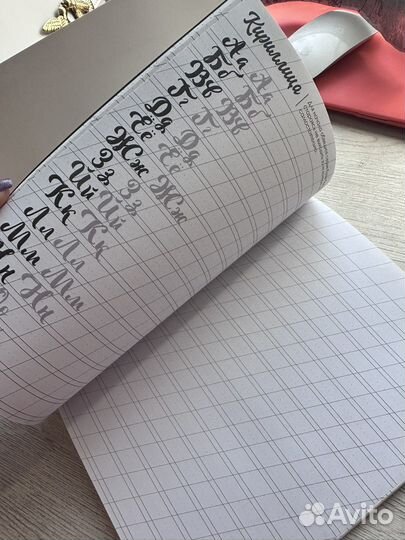 Кириллица
Аа Аа
Бб Бб
Вв Вв
Гг Гг
Дд Дд
Её Её
Жж Жж
Зз Зз
Ий Ий
Кк Кк
Лл Лл
Мм Мм
Нн Нн
Avito